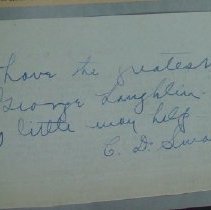 have the greatest
George Laughlin.
little may help
C. D.